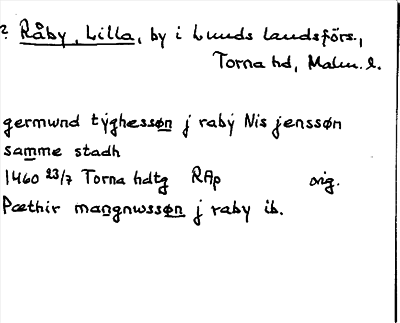 ? Råby, Lilla, by i Lunds landsförs.,
Torna hd, Malm. l.
germund týghessøn j rabý Nis jenssøn
samme stadh
1460 23/7 Torna hdtg RAp orig.
Pæthir mangnwssøn j raby ib.